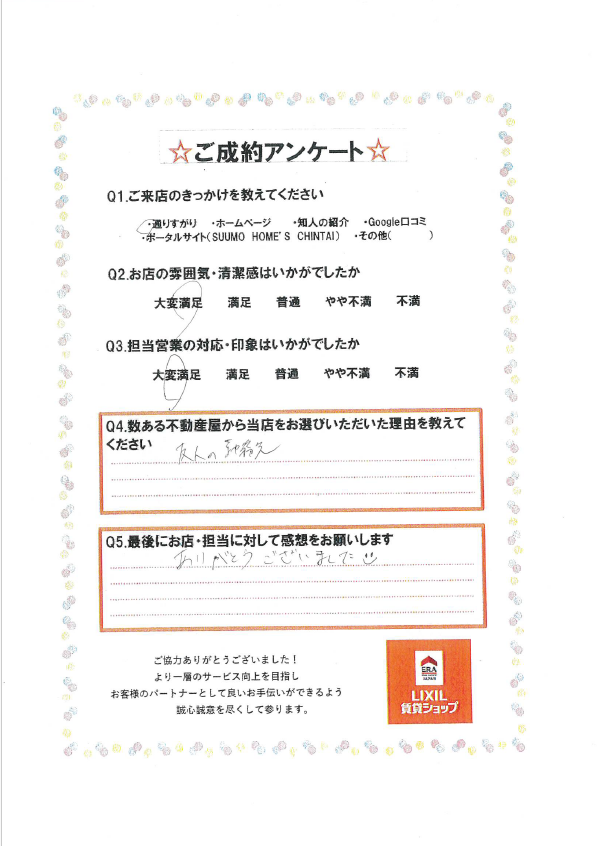 ☆ご成約アンケート☆
Q1.ご来店のきっかけを教えてください
・通りすがり ・ホームページ ・知人の紹介 ・Google口コミ
・ポータルサイト(SUUMO HOME'S CHINTAI) ・その他( )
Q2.お店の雰囲気・清潔感はいかがでしたか
大変満足 満足 普通 やや不満 不満
Q3.担当営業の対応・印象はいかがでしたか
大変満足 満足 普通 やや不満 不満
Q4.数ある不動産屋から当店をお選びいただいた理由を教えて
ください
友人の
Q5.最後にお店・担当に対して感想をお願いします
ありがとうございました
ご協力ありがとうございました！
より一層のサービス向上を目指し
お客様のパートナーとして良いお手伝いができるよう
誠心誠意を尽くして参ります。
ERA
JAPAN
LIXIL
賃貸ショップ